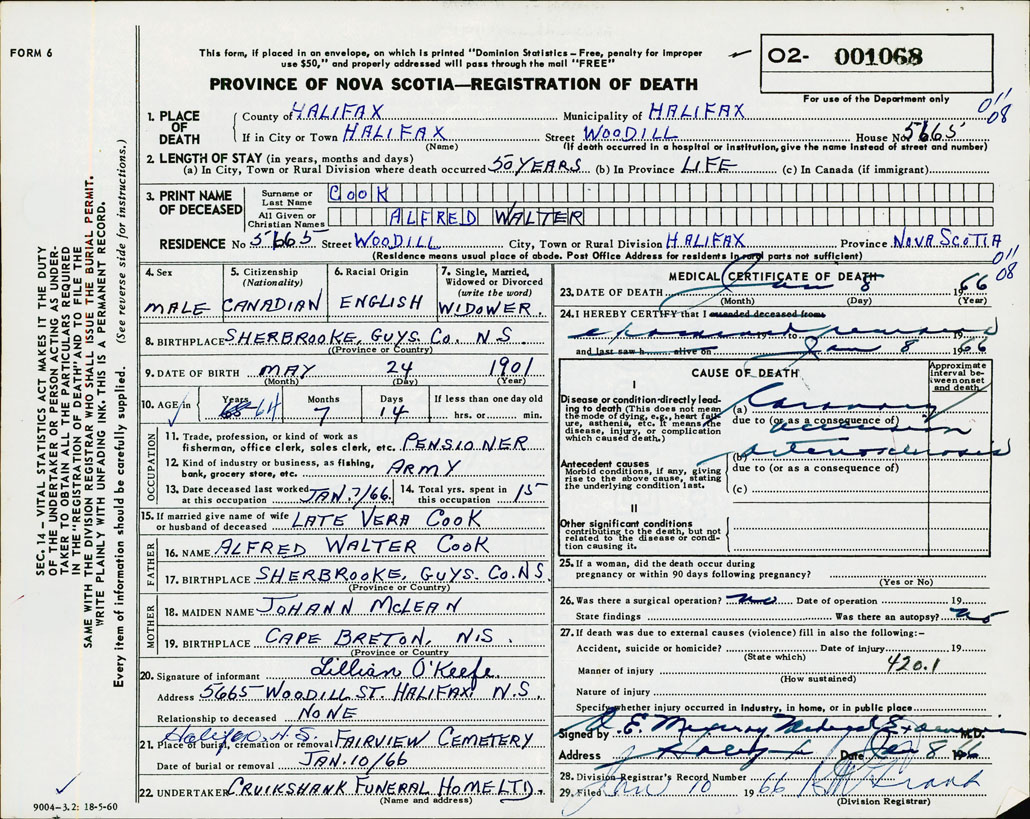 FORM 6
This form, if placed in an envelope, on which is printed "Dominion Statistics – Free, penalty for improper
use $50," and properly addressed will pass through the mail "FREE"
PROVINCE OF NOVA SCOTIA—REGISTRATION OF DEATH
02- 001068
For use of the Department only
1. PLACE OF DEATH
County of HALIFAX Municipality of HALIFAX 011/08
If in City or Town HALIFAX Street WOODILL House No. 5665
(Name) (If death occurred in a hospital or institution, give the name instead of street and number)
2. LENGTH OF STAY (in years, months and days)
(a) In City, Town or Rural Division where death occurred 50 YEARS (b) In Province LIFE (c) In Canada (if immigrant)
3. PRINT NAME OF DECEASED
Surname or Last Name COOK
All Given or Christian Names ALFRED WALTER
RESIDENCE No 5665 Street WOODILL City, Town or Rural Division HALIFAX Province NOVA SCOTIA
(Residence means usual place of abode. Post Office Address for residents in rural parts not sufficient) 011/08
4. Sex MALE
5. Citizenship (Nationality) CANADIAN
6. Racial Origin ENGLISH
7. Single, Married, Widowed or Divorced (write the word) WIDOWER.
8. BIRTHPLACE SHERBROOKE, GUYS. CO. N.S.
(Province or Country)
9. DATE OF BIRTH MAY 24 1901
(Month) (Day) (Year)
10. AGE in Years 64 Months 7 Days 14 If less than one day old hrs. or min.
OCCUPATION
11. Trade, profession, or kind of work as
fisherman, office clerk, sales clerk, etc. PENSIONER
12. Kind of industry or business, as fishing,
bank, grocery store, etc. ARMY
13. Date deceased last worked at this occupation JAN. 7/66. 14. Total yrs. spent in this occupation 15
15. If married give name of wife
or husband of deceased LATE VERA COOK
FATHER
16. NAME ALFRED WALTER COOK
17. BIRTHPLACE SHERBROOKE, GUYS. CO. N.S.
(Province or Country)
MOTHER
18. MAIDEN NAME JOHANN MCLEAN
19. BIRTHPLACE CAPE BRETON, N.S.
(Province or Country)
20. Signature of informant Lillian O'Keefe.
Address 5665 WOODILL ST. HALIFAX N.S.
Relationship to deceased NONE
21. Place of burial, cremation or removal FAIRVIEW CEMETERY
Date of burial or removal JAN. 10/66
22. UNDERTAKER CRUIKSHANK FUNERAL HOME LTD.
(Name and address)
MEDICAL CERTIFICATE OF DEATH
23. DATE OF DEATH Jan 8 1966
(Month) (Day) (Year)
24. I HEREBY CERTIFY that I attended deceased from
19 to
and last saw h alive on Jan 8 1966
CAUSE OF DEATH
Approximate interval between onset and death
I
Disease or condition directly leading to death (This does not mean the mode of dying, e.g., heart failure, asthenia, etc. It means the disease, injury, or complication which caused death.)
(a) Coronary occlusion
due to (or as a consequence of)
Antecedent causes
Morbid conditions, if any, giving rise to the above cause, stating the underlying condition last.
(b) arteriosclerosis
due to (or as a consequence of)
(c)
II
Other significant conditions contributing to the death, but not related to the disease or condition causing it.
25. If a woman, did the death occur during
pregnancy or within 90 days following pregnancy?
(Yes or No)
26. Was there a surgical operation? no Date of operation 19
State findings Was there an autopsy? no
27. If death was due to external causes (violence) fill in also the following:–
Accident, suicide or homicide? Date of injury 19
(State which)
Manner of injury 420.1
(How sustained)
Nature of injury
Specify whether injury occurred in industry, in home, or in public place
Signed by M.D.
Address Halifax Date Jan 8 1966
28. Division Registrar's Record Number
29. Filed Jan 10 1966
(Division Registrar)
9004–3.2: 18-5-60
SEC. 14 – VITAL STATISTICS ACT MAKES IT THE DUTY
OF THE UNDERTAKER OR PERSON ACTING AS UNDER-
TAKER TO OBTAIN ALL THE PARTICULARS REQUIRED
IN THE "REGISTRATION OF DEATH" AND TO FILE THE
SAME WITH THE DIVISION REGISTRAR WHO SHALL ISSUE THE BURIAL PERMIT.
WRITE PLAINLY WITH UNFADING INK. THIS IS A PERMANENT RECORD.
Every item of information should be carefully supplied. (See reverse side for instructions.)